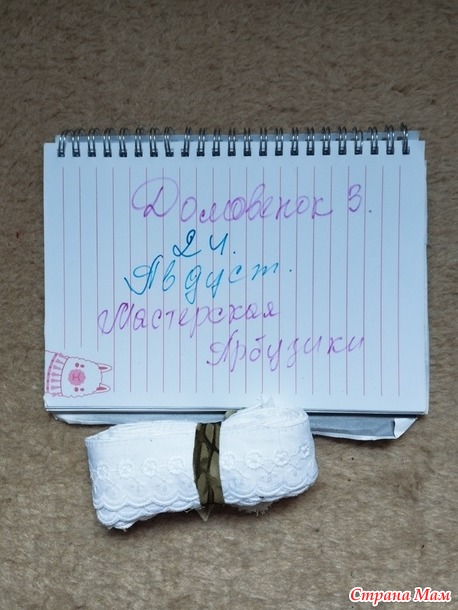 Домовенок 3.
24.
Август.
Мастерская
Арбузики
Страна Мам